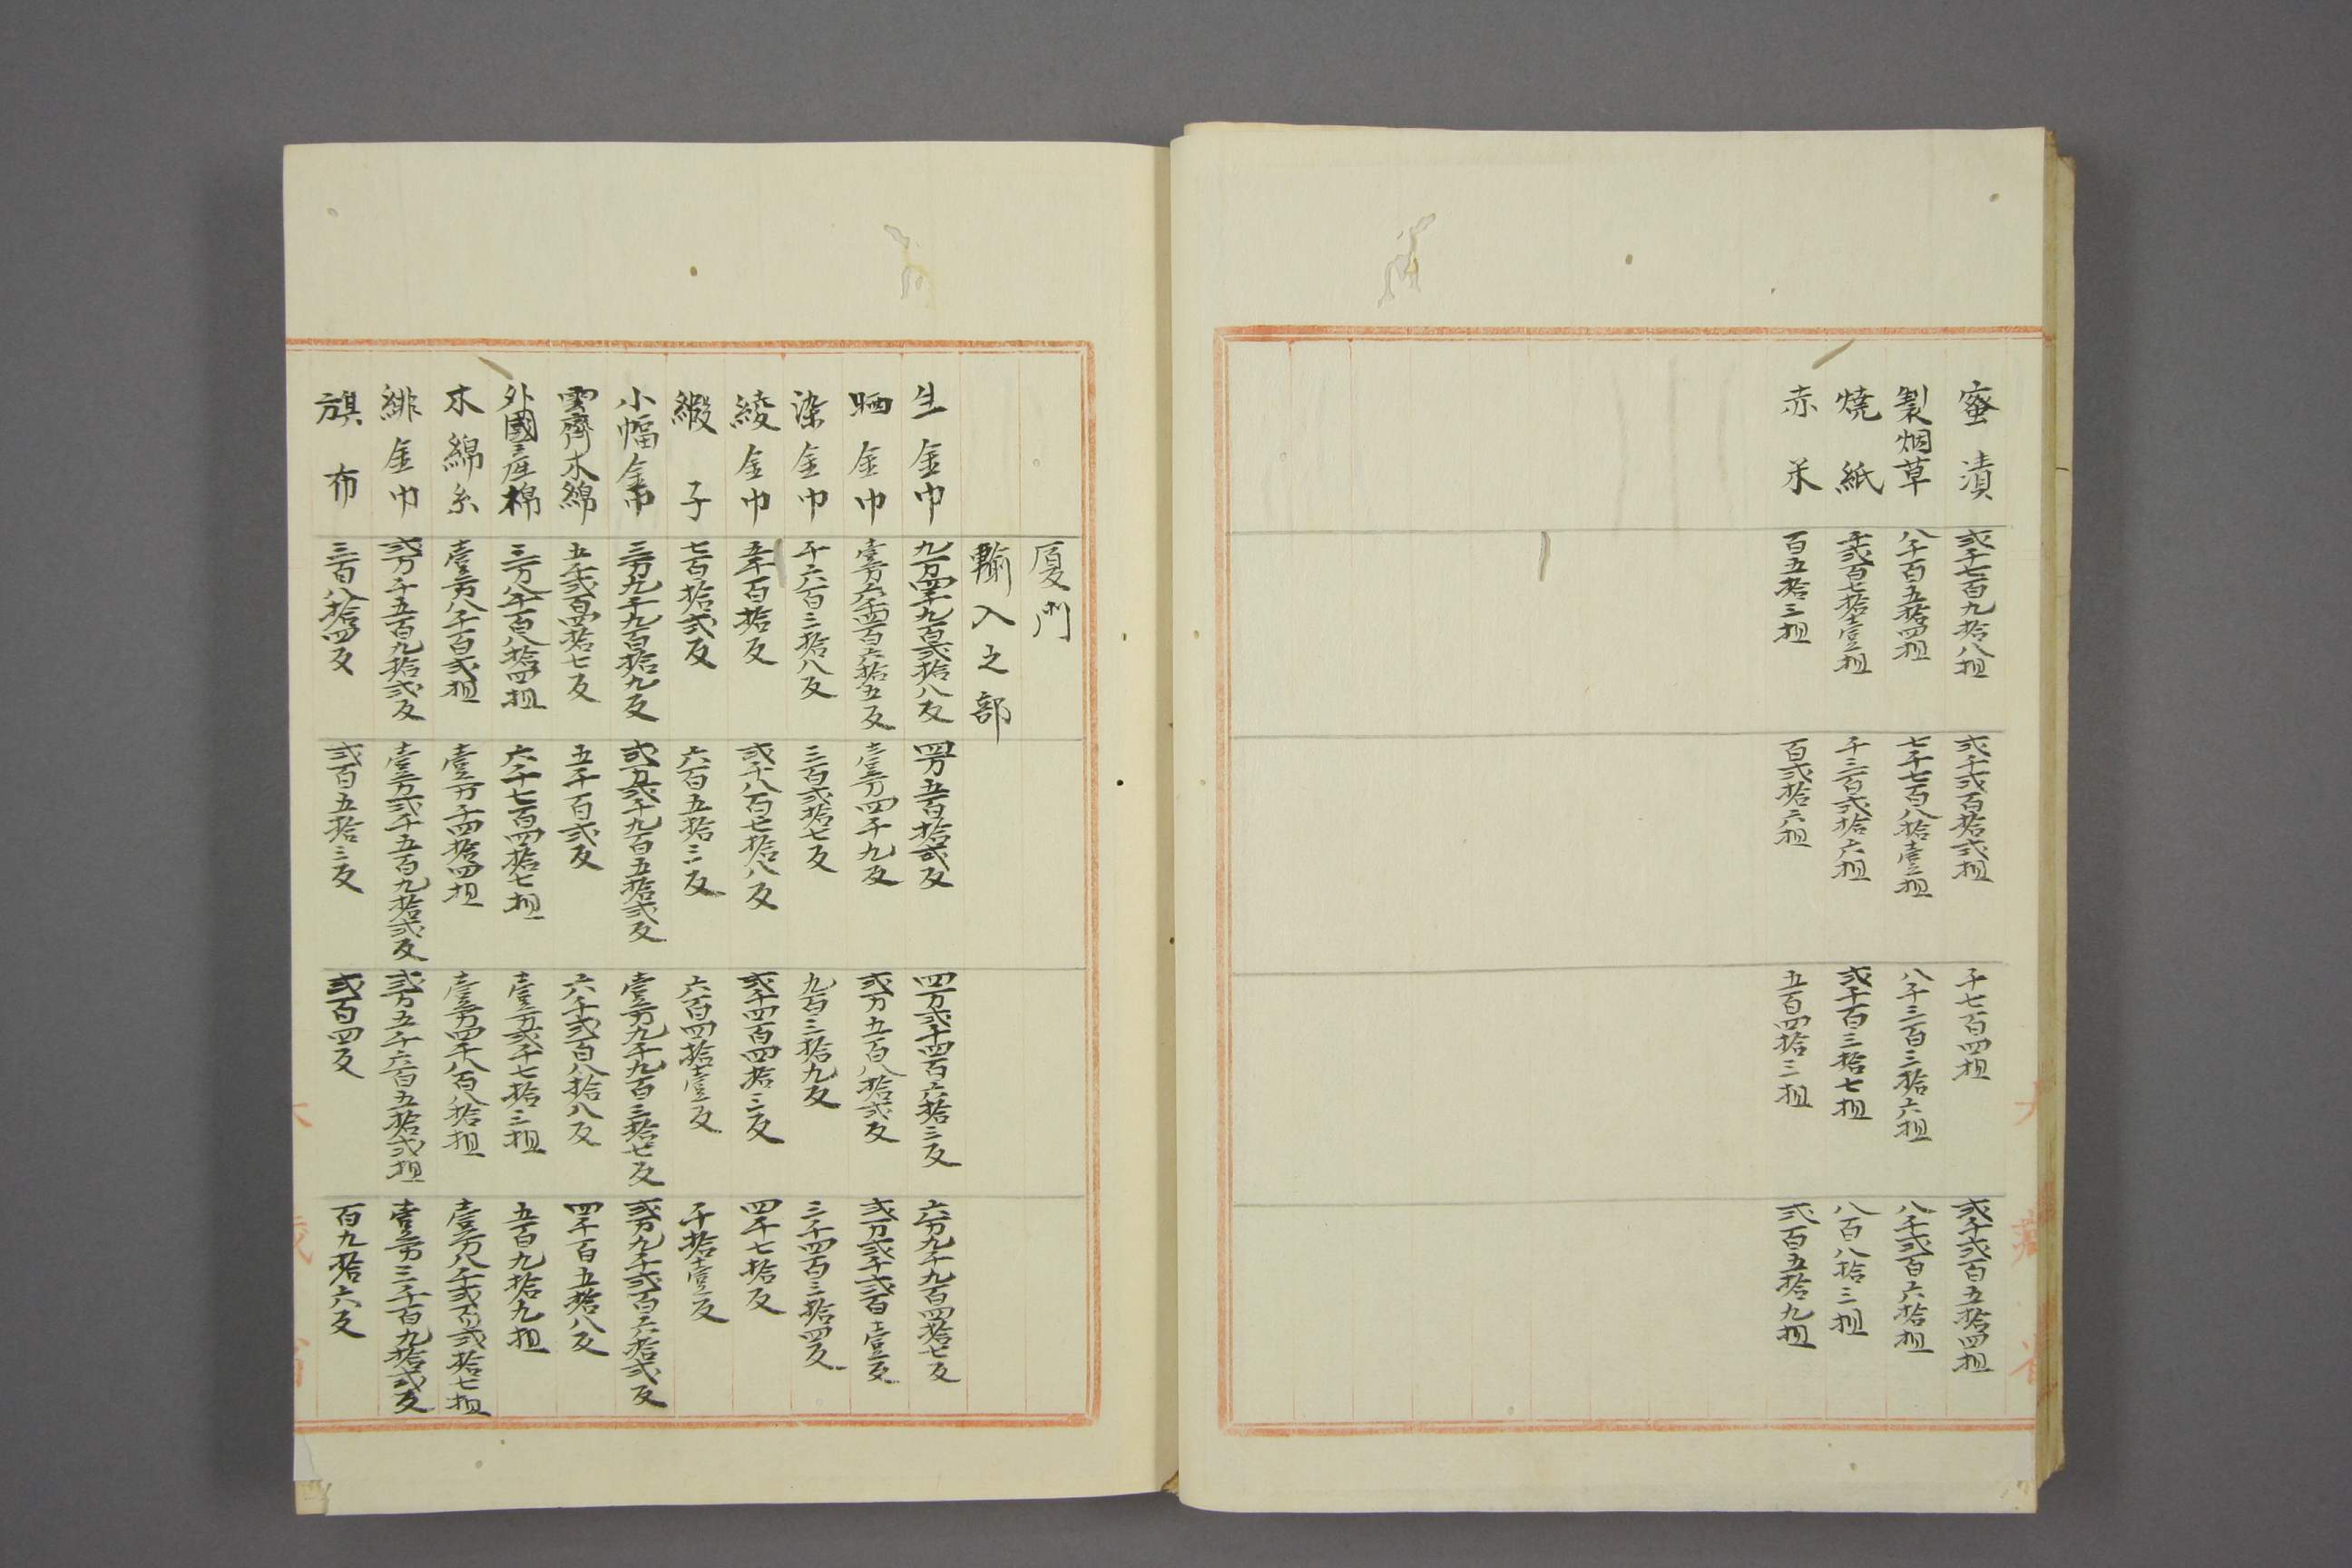 蜜漬 弐千七百九拾八担 弐千弐百拾弐担 千七百四担 弐千弐百五拾四担
製烟草 八千百五拾四担 七千七百八拾壹担 八千三百三拾六担 八千弐百六拾担
焼紙 千弐百七拾壹担 千三百弐拾六担 弐千百三拾七担 八百八拾三担
赤米 百五拾三担 百弐拾六担 五百四拾三担 弐百五拾九担
厦門
輸入之部
生金巾 九万四千九百弐拾八反 四万五百拾弐反 四万弐千四百六拾三反 六万九千九百四拾七反
晒金巾 壹万六千四百六拾五反 壹万四千九反 弐万五百八拾弐反 弐万弐千弐百壹反
染金巾 千六百三拾八反 三百弐拾七反 九百三拾九反 三千四百三拾四反
綾金巾 五千百拾反 弐千八百七拾八反 弐千四百四拾三反 四千七拾反
緞子 七百拾弐反 六百五拾三反 六百四拾壹反 千拾壹反
小幅金巾 三万九千九百拾九反 弐万弐千九百五拾弐反 壹万九千九百三拾七反 弐万九千弐百六拾弐反
雲齊木綿 五千弐百四拾七反 五千百弐反 六千弐百八拾八反 四千百五拾八反
外國産棉 三万八千百八拾四担 六千七百四拾七担 壹万弐千七拾三担 五百九拾九担
木綿糸 壹万八千百弐担 壹万千四拾四担 壹万四千八百八拾担 壹万八千弐百弐拾七担
緋金巾 弐万千五百九拾弐反 壹万弐千五百九拾弐反 弐万五千六百五拾弐担 壹万三千百九拾弐反
旗布 三百八拾四反 弐百五拾三反 弐百四反 百九拾六反